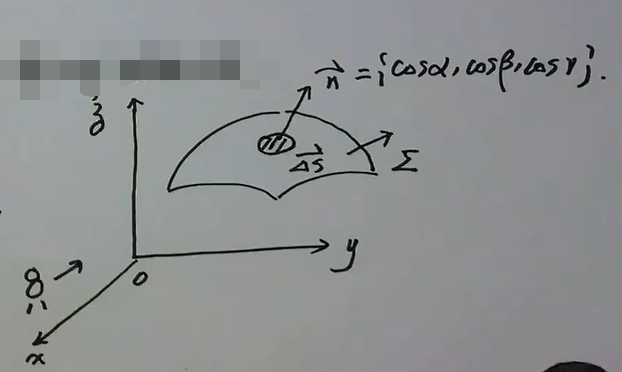 n⃗ = {cosα, cosβ, cosγ}.
z
ΔS⃗
Σ
y
o
x